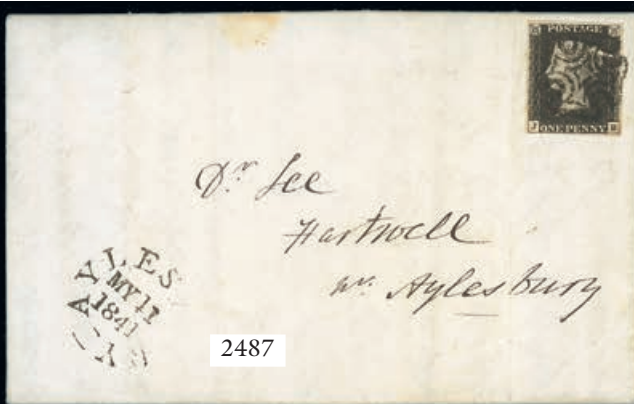 POSTAGE
J ONE PENNY
Dr. Lee
Hartwell
nr. Aylesbury
AYLESBURY
MY 11
1841
2487